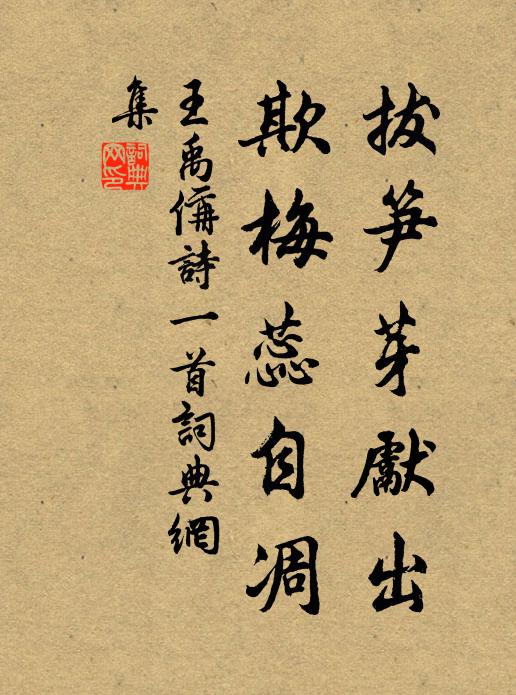 拔笋芽獻出
欺梅蕊自凋
王禹偁詩一首詞典網
集
詞典網印